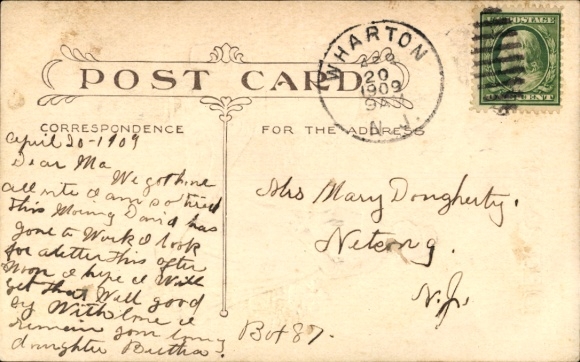 POST CARD
WHARTON
20
1909
N.J.
POSTAGE
CENT
CORRESPONDENCE
FOR THE ADDRESS
April 20-1909
Dear Ma
We got home
all rite I am so tired
this Morning David has
gone to Work I look
for a letter this after
noon I hope I Will
get that Well good
by With love I
remain your loving
daughter Bertha.
Mrs Mary Dougherty.
Netcong.
N.J.
Box 87.